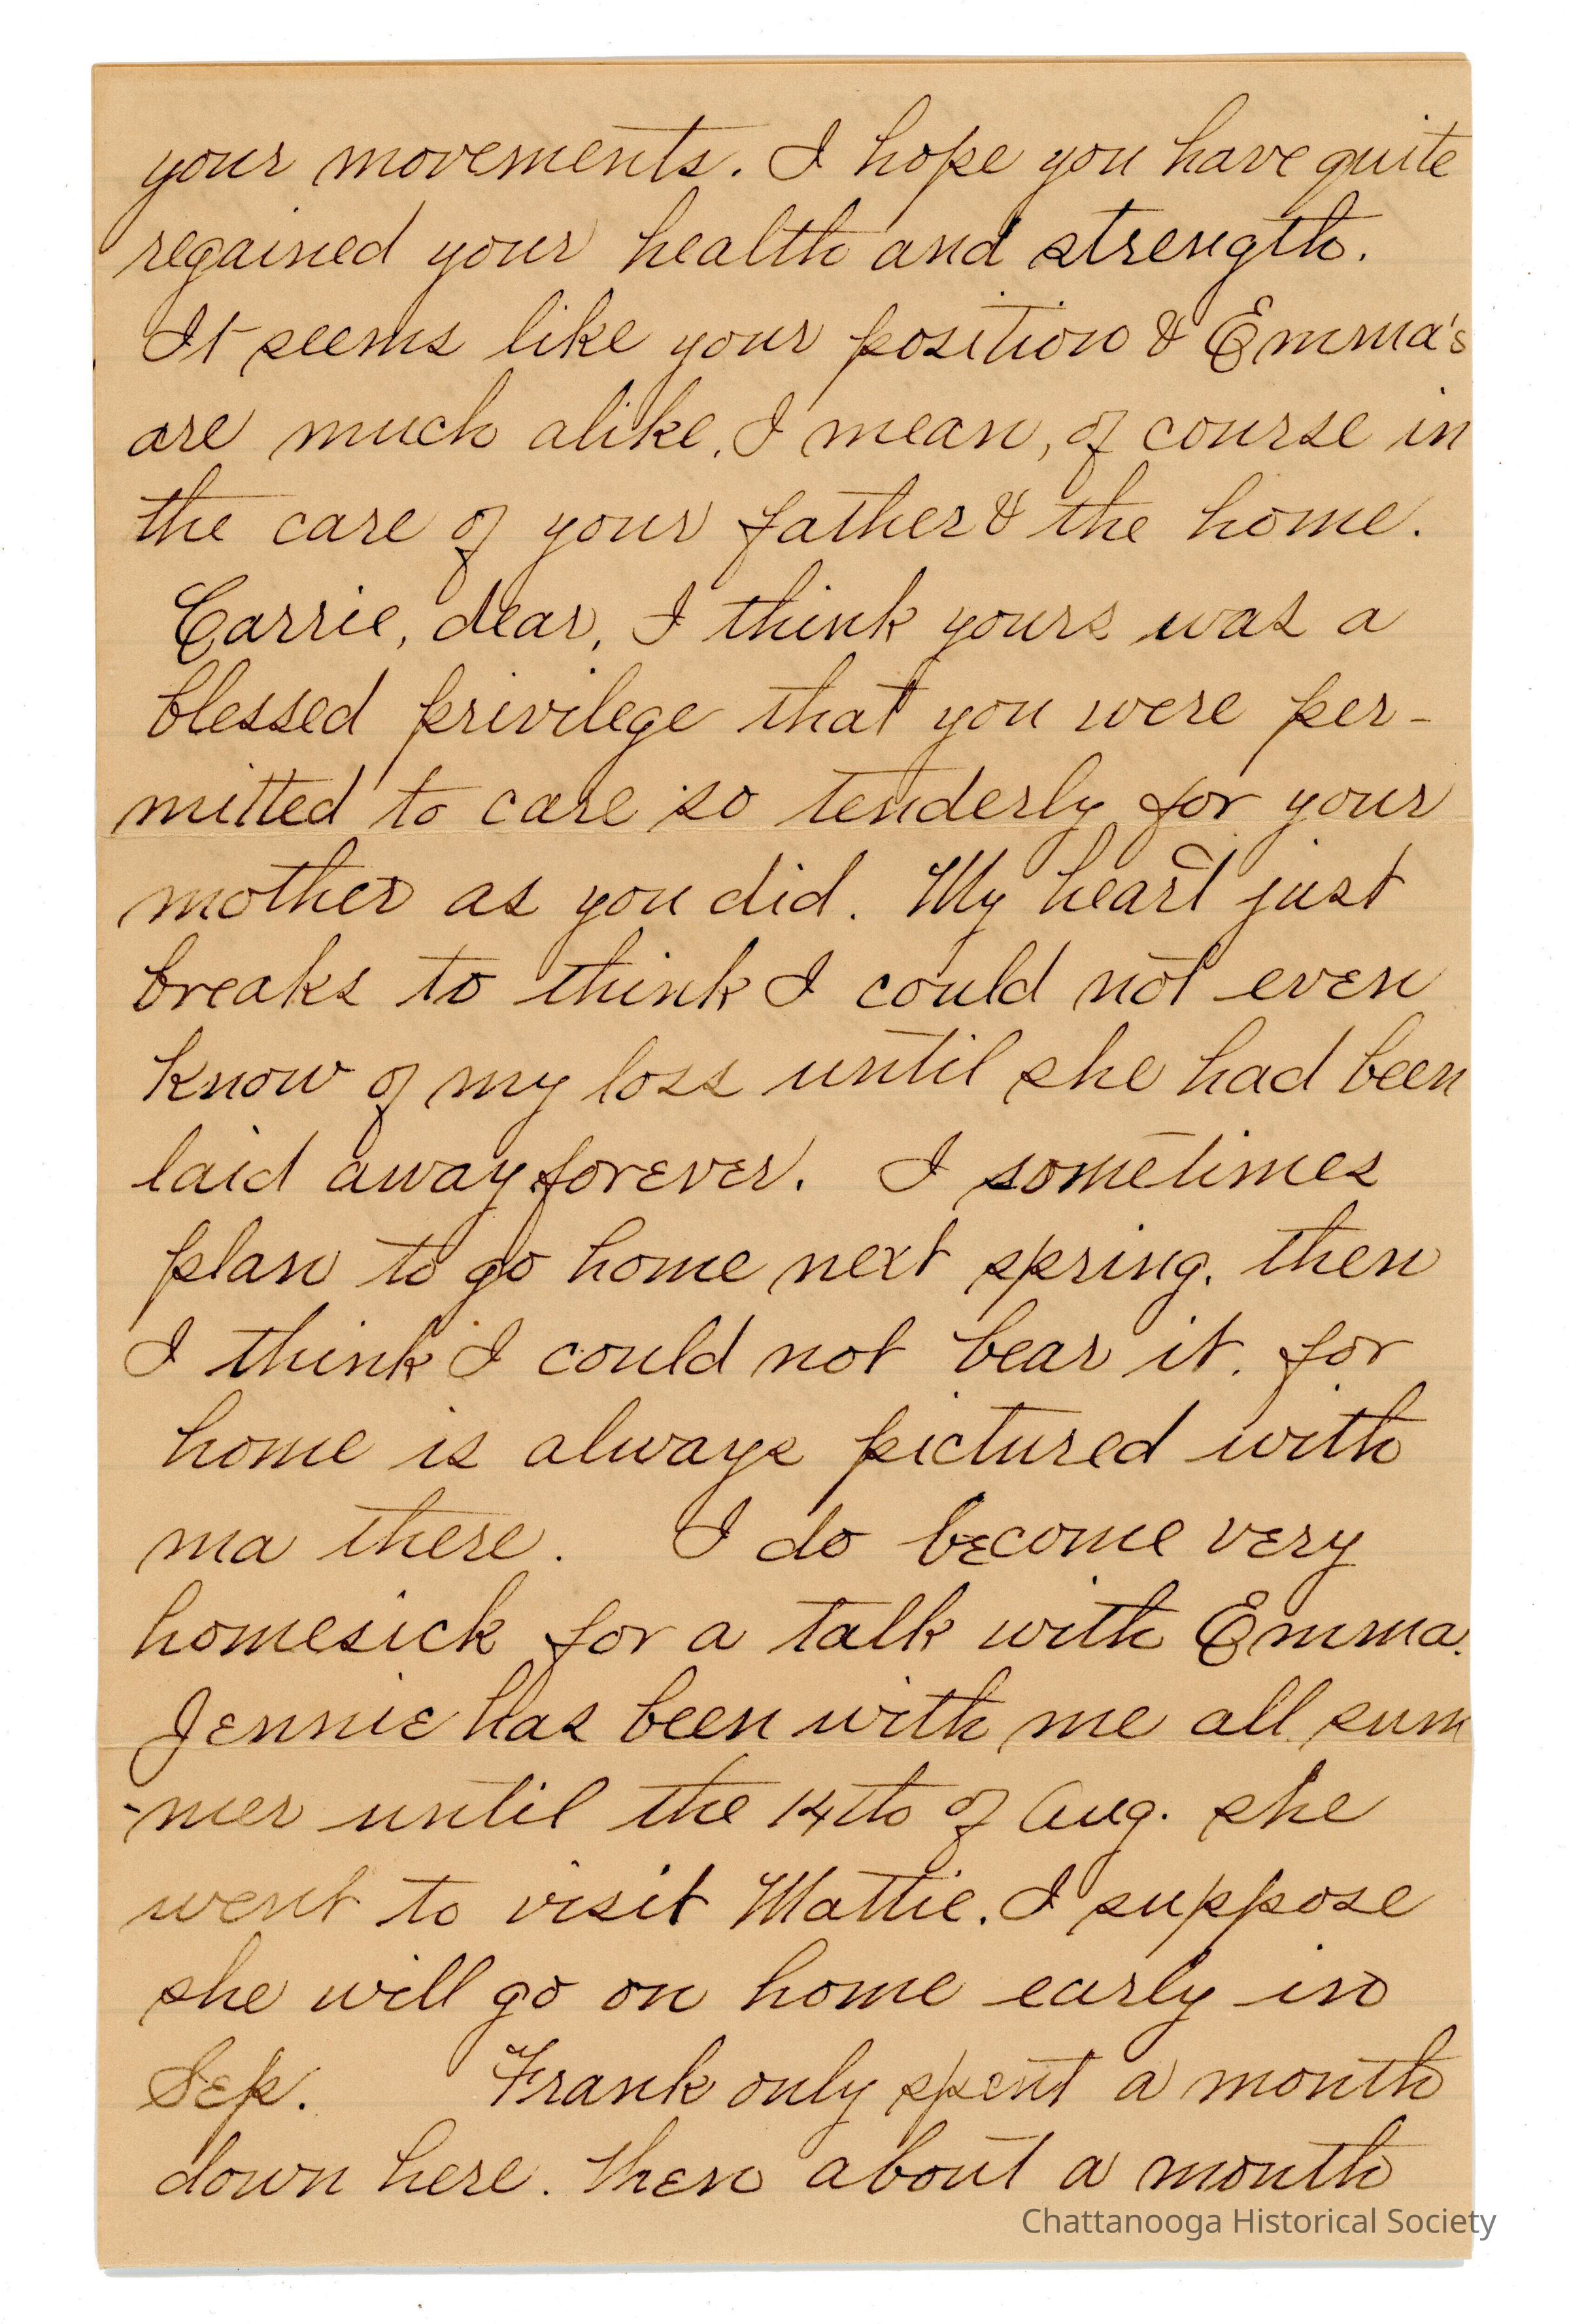 your movements. I hope you have quite
regained your health and strength.
It seems like your position & Emma's
are much alike, I mean, of course in
the care of your father & the home.
Carrie, dear, I think yours was a
blessed privilege that you were per-
mitted to care so tenderly for your
mother as you did. My heart just
breaks to think I could not even
know of my loss until she had been
laid away forever. I sometimes
plan to go home next spring. then
I think I could not bear it. for
home is always pictured with
ma there. I do become very
homesick for a talk with Emma.
Jennie has been with me all sum
-mer until the 14th of Aug. she
went to visit Mattie. I suppose
she will go on home early in
Sep. Frank only spent a month
down here. then about a month
Chattanooga Historical Society